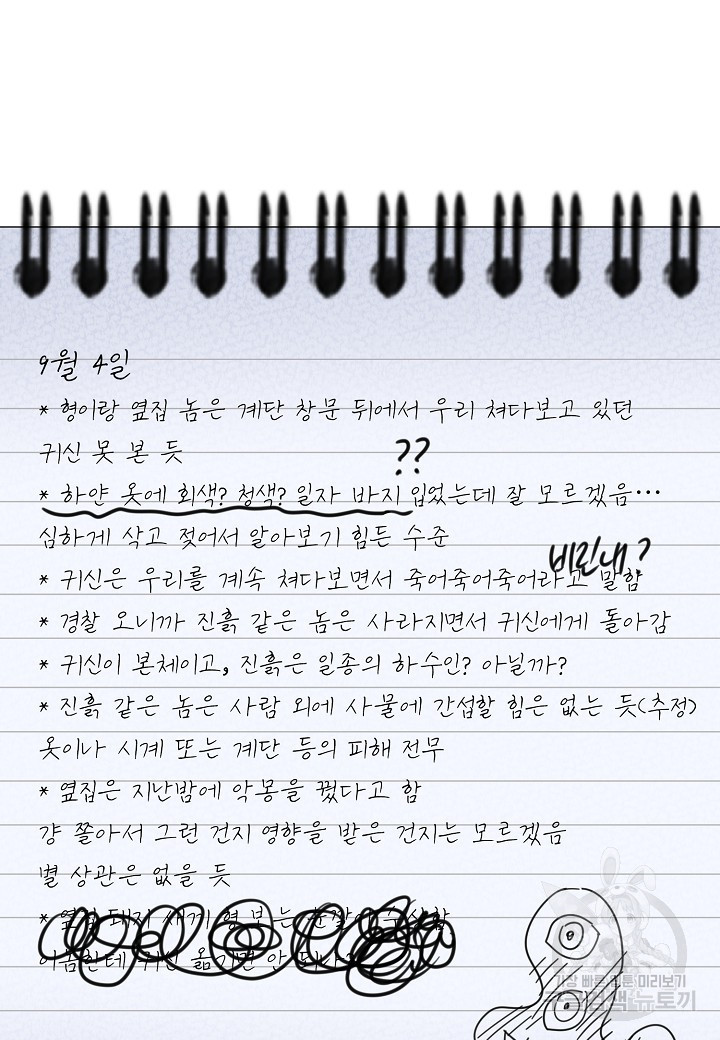 9월 4일
* 형이랑 옆집 놈은 계단 창문 뒤에서 우리 쳐다보고 있던
귀신 못 본 듯
??
* 하얀 옷에 회색? 청색? 일자 바지 입었는데 잘 모르겠음…
심하게 삭고 젖어서 알아보기 힘든 수준
비린내?
* 귀신은 우리를 계속 쳐다보면서 죽어죽어죽어라고 말함
* 경찰 오니까 진흙 같은 놈은 사라지면서 귀신에게 돌아감
* 귀신이 본체이고, 진흙은 일종의 하수인? 아닐까?
* 진흙 같은 놈은 사람 외에 사물에 간섭할 힘은 없는 듯(추정)
옷이나 시계 또는 계단 등의 피해 전무
* 옆집은 지난밤에 악몽을 꿨다고 함
걍 쫄아서 그런 건지 영향을 받은 건지는 모르겠음
별 상관은 없을 듯
가장 빠른 웹툰 미리보기
뉴토끼